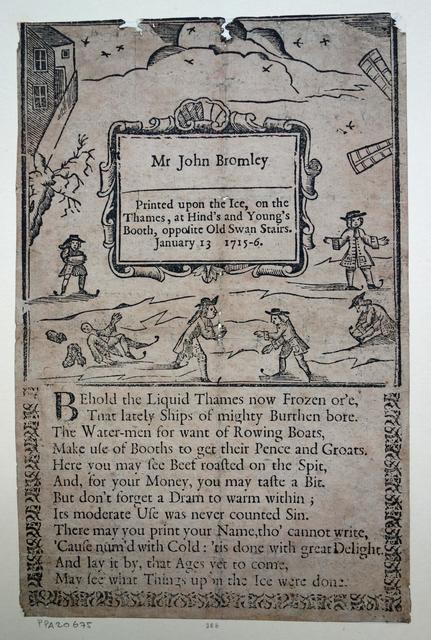 Mr John Bromley
Printed upon the Ice, on the
Thames, at Hind's and Young's
Booth, opposite Old Swan Stairs.
January 13 1715-6.
BEhold the Liquid Thames now Frozen or'e,
That lately Ships of mighty Burthen bore.
The Water-men for want of Rowing Boats,
Make use of Booths to get their Pence and Groats.
Here you may see Beef roasted on the Spit,
And, for your Money, you may taste a Bit.
But don't forget a Dram to warm within ;
Its moderate Use was never counted Sin.
There may you print your Name, tho' cannot write,
'Cause num'd with Cold : 'tis done with great Delight.
And lay it by, that Ages yet to come,
May see what Things upon the Ice were done.
PPA20675
386